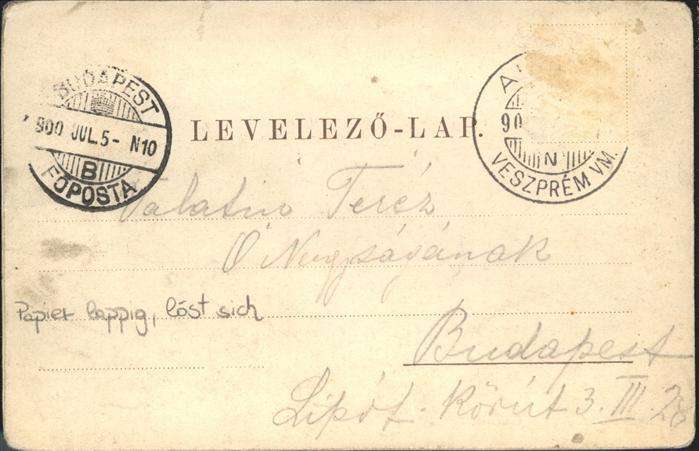 BUDAPEST
900 JUL. 5 - N10
B
FŐPOSTA
LEVELEZŐ-LAP.
A
90
N
VESZPRÉM VM.
Palatin Teréz
Ő Nagyságának
Papier lappig, löst sich
Budapest
Lipót-Körút 3. III. 20